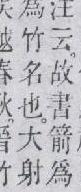 注云。故書箭爲
爲竹名也。大射
吳越春秋。晉竹